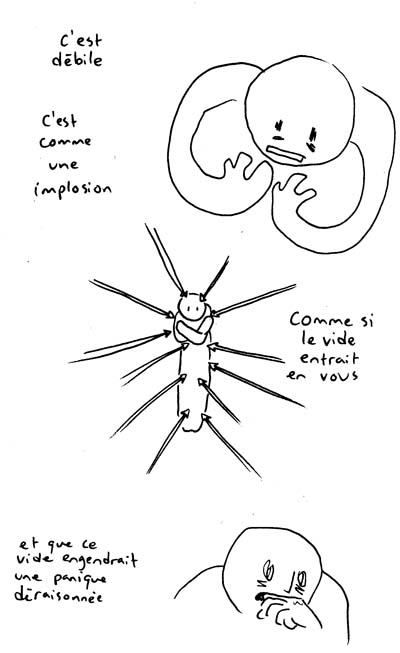 C'est
débile
C'est
comme
une
implosion
Comme si
le vide
entrait
en vous
et que ce
vide engendrait
une panique
déraisonnée